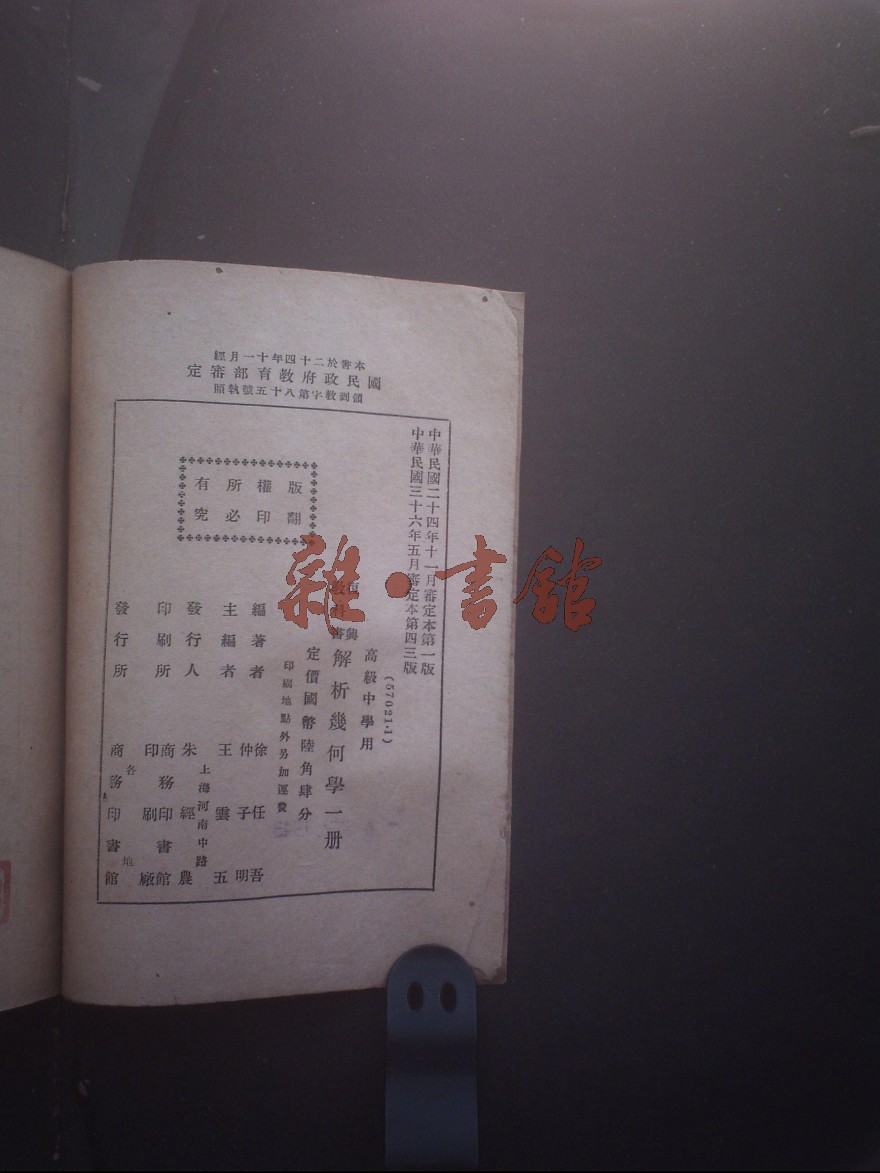 本書於二十四年十一月經
國民政府教育部審定
領到教字第八十五號執照
中華民國二十四年十一月審定本第一版
中華民國三十六年五月審定本第四三版
(57021·1)
高級中學用
復興
教科書
解析幾何學一册
定價國幣陸角肆分
印刷地點外另加運費
版權所有
翻印必究
編著者 徐任吾 仲子明
主編者 王雲五
發行人 朱經農
上海河南中路
印刷所 商務印書館
印刷廠
發行所 商務印書館
各地
雜·書館